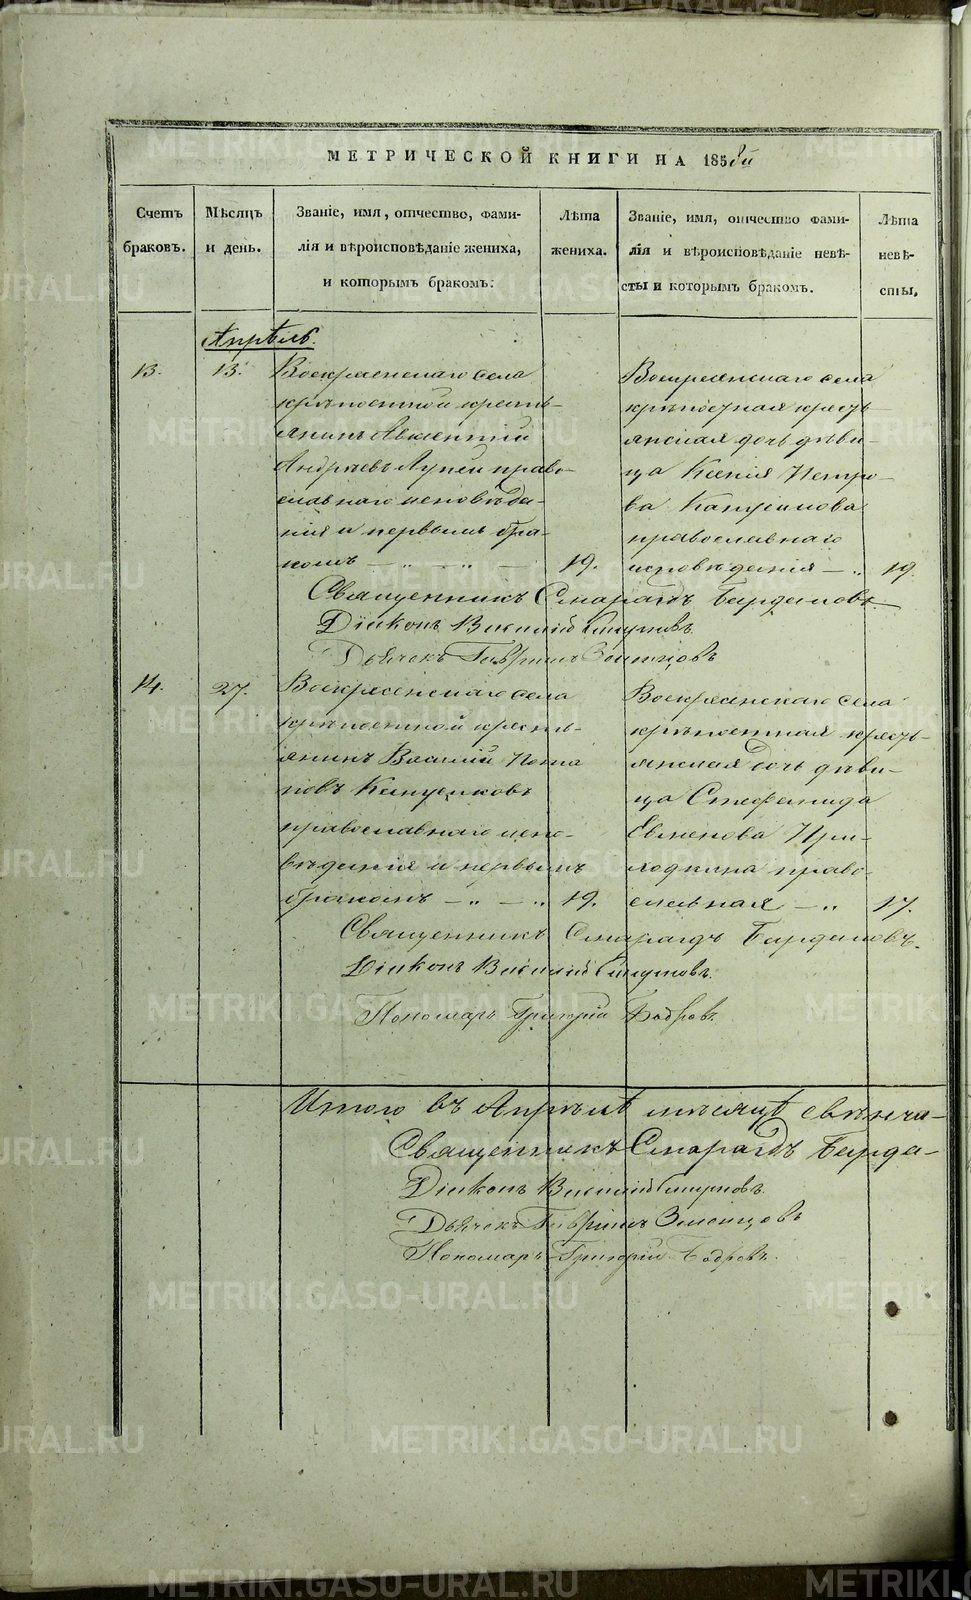 МЕТРИЧЕСКОЙ КНИГИ НА 1858й
Счетъ браковъ.
Мѣсяцъ и день.
Званіе, имя, отчество, фами-
лія и вѣроисповѣданіе жениха,
и которымъ бракомъ.
Лѣта жениха.
Званіе, имя, отчество фами-
лія и вѣроисповѣданіе невѣ-
сты и которымъ бракомъ.
Лѣта невѣ-
сты,
Апрѣль.
13.
13.
Воскресенскаго села
крѣпостной кресть-
янинъ Авксентій
Андреевъ право-
славнаго исповѣда-
нія и первымъ бра-
комъ — „ — „ —
19.
Воскресенскаго села
крѣпостная кресть-
янская дочь дѣви-
ца Ксенія Петро-
ва
православнаго
исповѣданія — „
19.
Священникъ Смарагдъ
Діаконъ Василій Смирновъ
Дьячекъ Гавриилъ
14.
27.
Воскресенскаго села
крѣпостной кресть-
янинъ Василій Пота
повъ
православнаго испо-
вѣданія и первымъ
бракомъ — „ — „
19.
Воскресенскаго села
крѣпостная кресть-
янская дочь дѣви-
ца Стефанида
православная — „
17.
Священникъ Смарагдъ
Діаконъ Василій Смирновъ.
Пономарь Григорій Бодровъ.
Итого въ Апрѣлѣ мѣсяцѣ свѣнча-
Священникъ Смарагдъ
Діаконъ Василій Смирновъ.
Дьячекъ Гавриилъ
Пономарь Григорій Бодровъ.
METRIKI.GASO-URAL.RU